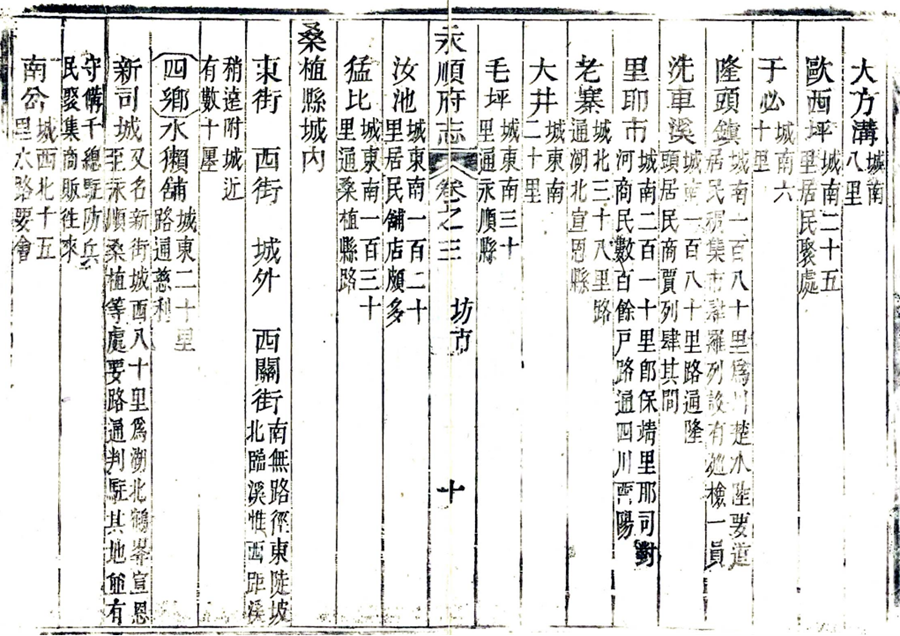 大方溝城南八里
歐西坪城南二十五里居民聚處
于必城南六十里
隆頭鎮城南一百八十里為川楚水陸要道居民稠集市肆羅列設有巡檢一員
洗車溪城南一百八十里路通隆頭居民商賈列肆其間
里耶市城南二百一十里郎保靖里那司對河商民數百餘戶路通四川酉陽
老寨城北三十八里路通湖北宣恩縣
大井城東南二十里
毛坪城東南三十里通永順縣
永順府志 卷之三 坊市 十
汝池城東南一百二十里居民舖店頗多
猛比城東南一百三十里通桑植縣路
桑植縣城內
東街 西街 城外 西關街南無路徑東陡坡北臨溪惟西距溪
稍遠附城近有數十廛
四鄉水獺舖城東二十里路通慈利
新司城又名新街城西八十里為湖北鶴峯宣恩至永順桑植等處要路通判駐其地並有
守備千總駐防兵民聚集商販往來
南公城西北十五里水路要會